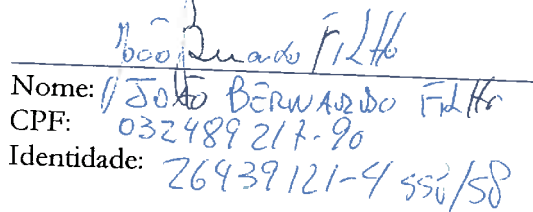 João Bernardo Filho
Nome: João BERNARDO Filho
CPF: 032489217-90
Identidade: 26439121-4 SSP/SP